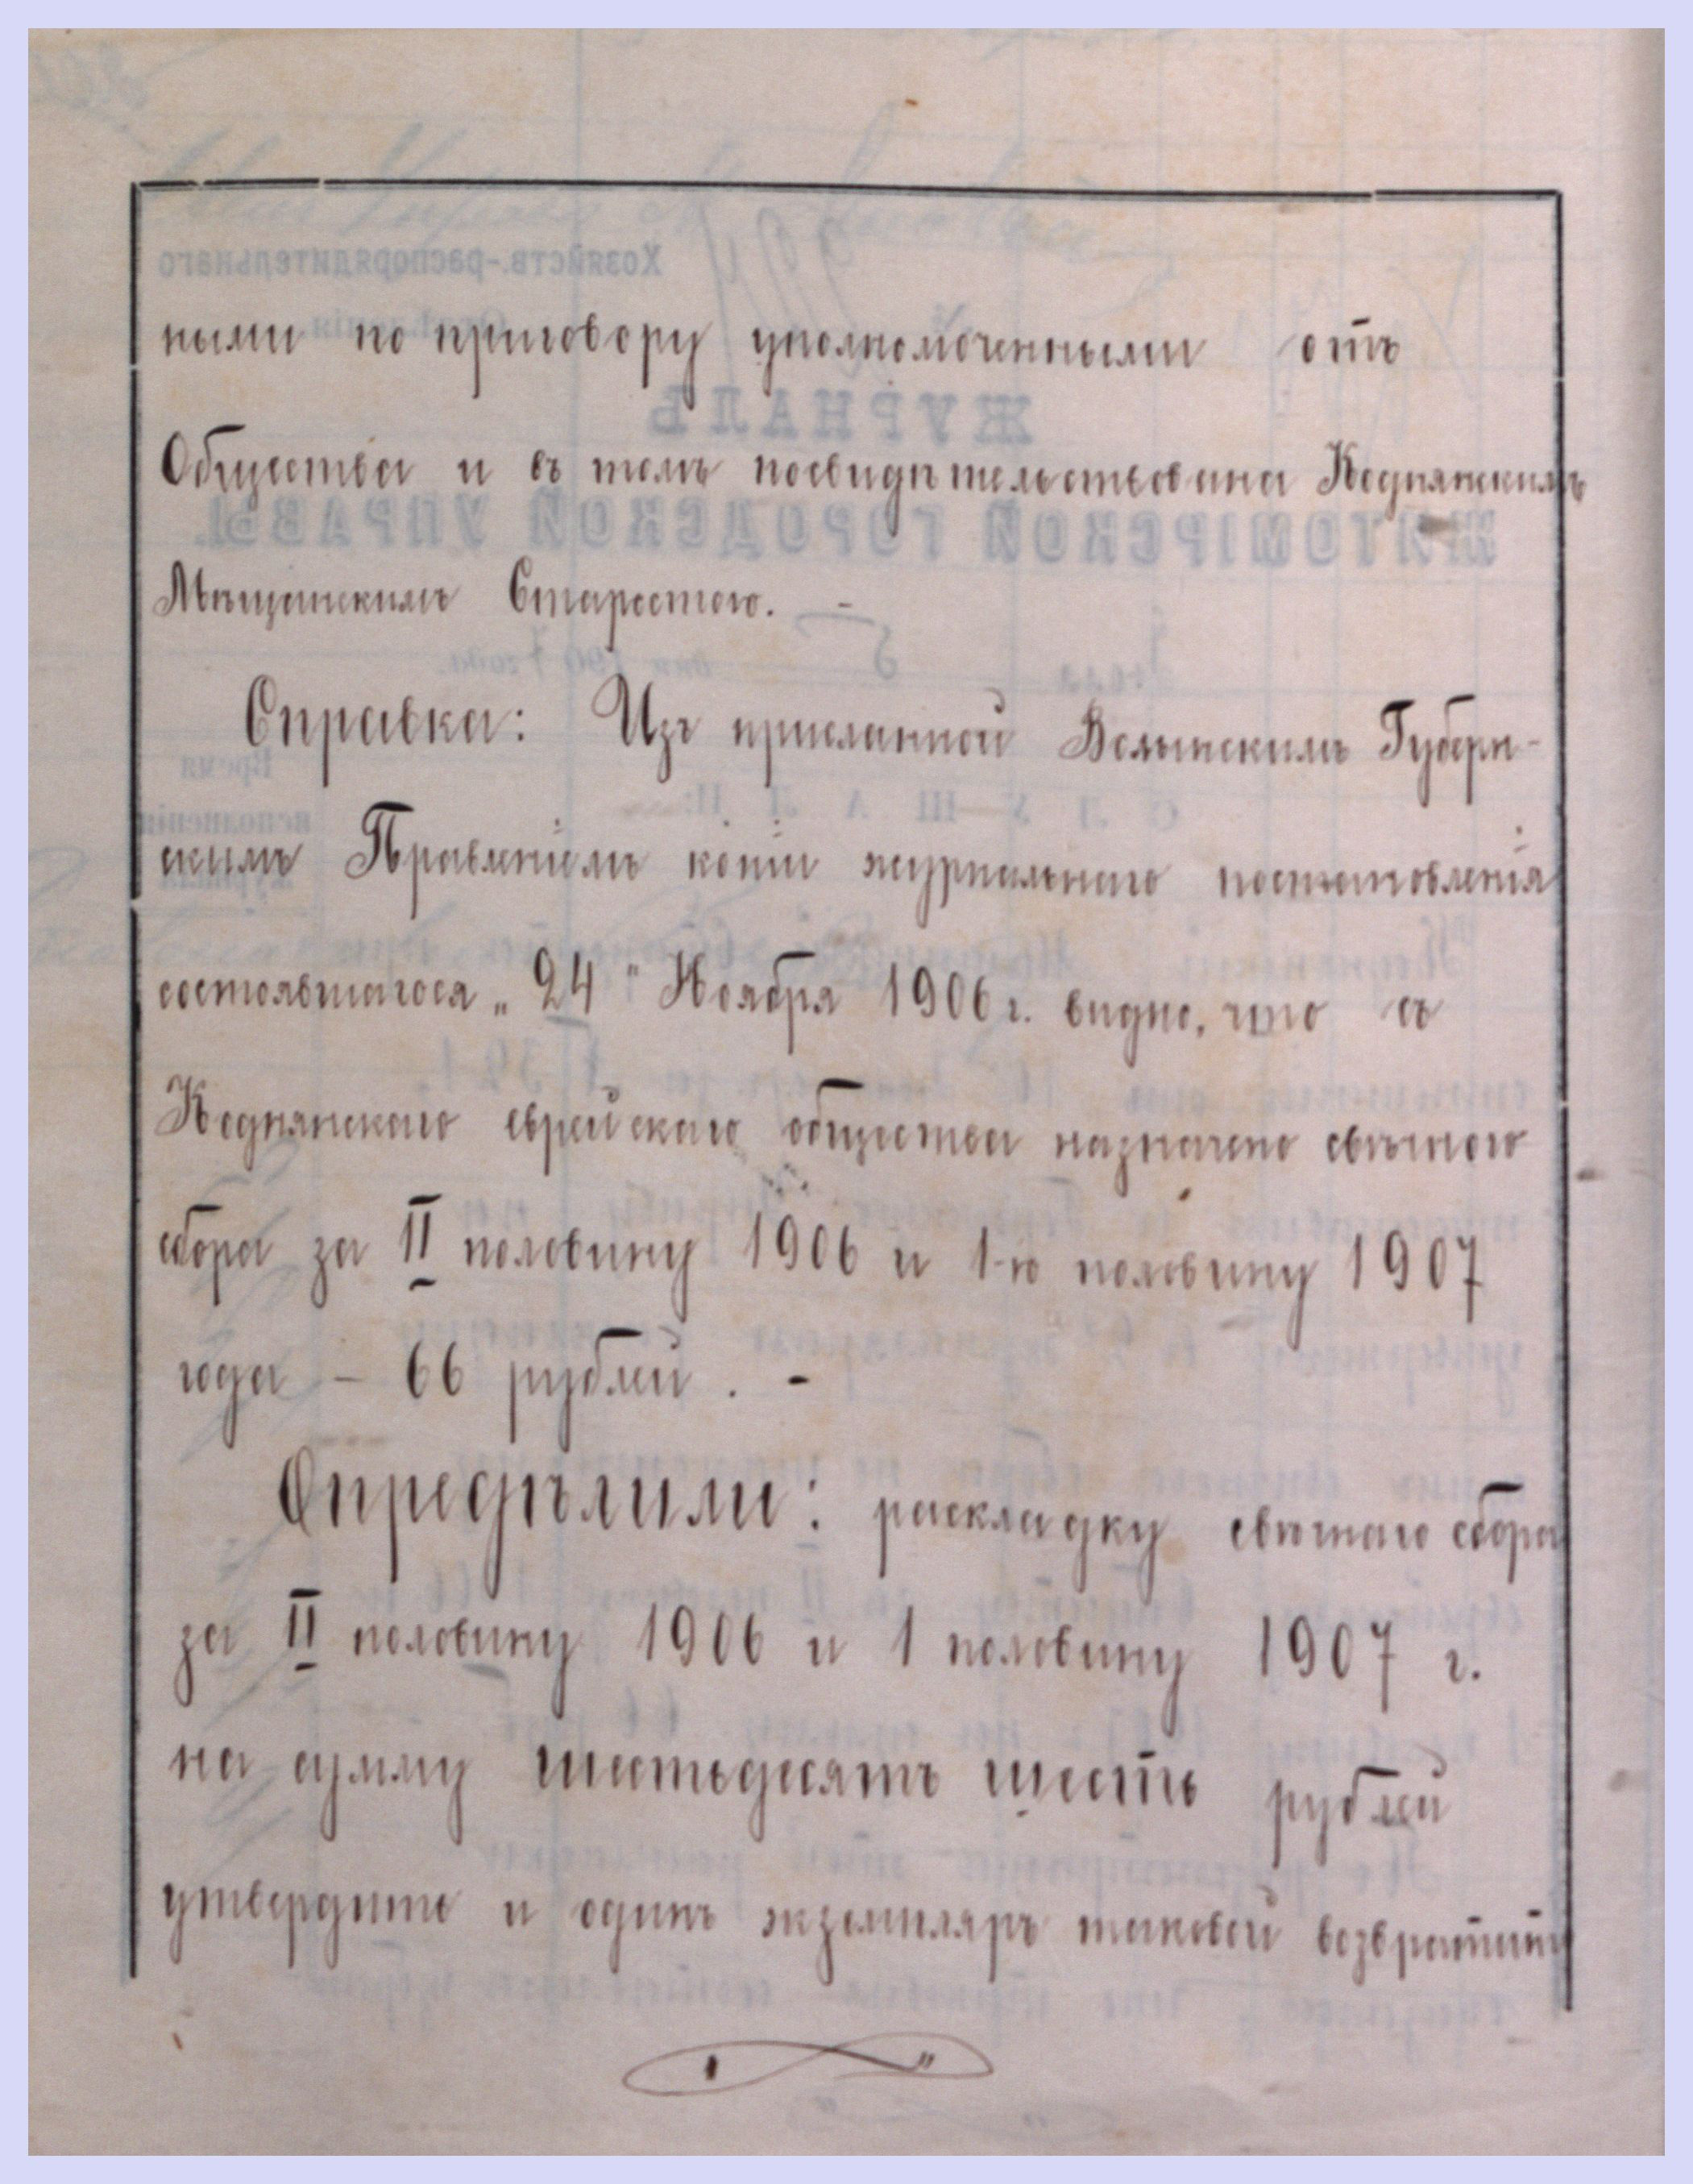 ными по приговору уполномоченными отъ
Общества и въ томъ посвидѣтельствована Коднянскимъ
Мѣщанскимъ Старостою. -
Справка: Изъ присланной Волынскимъ Губерн-
скимъ Правленіемъ копіи журнальнаго постановленія
состоявшагося „24" Ноября 1906 г. видно, что съ
Коднянскаго еврейскаго общества назначено свѣчного
сбора за II половину 1906 и 1-ю половину 1907
года - 66 рублей. -
Опредѣлили: раскладку свѣчнаго сбора
за II половину 1906 и 1 половину 1907 г.
на сумму шестьдесятъ шесть рублей
утвердить и одинъ экземпляръ таковой возвратить